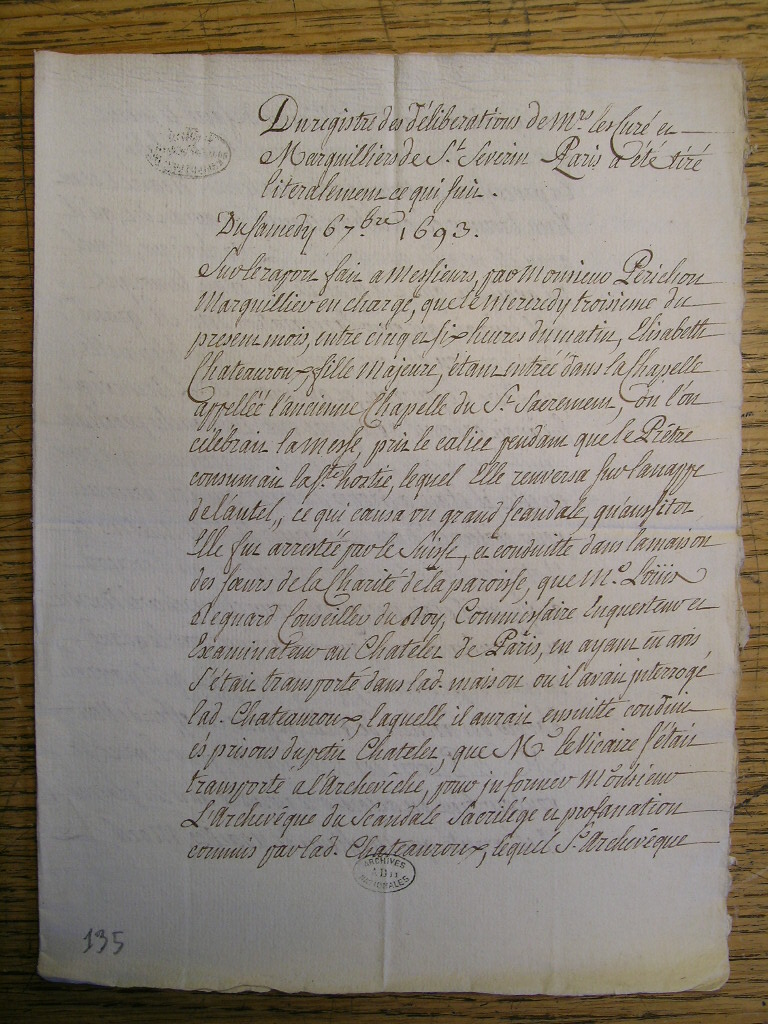 Du registre des déliberations de Mrs. les Curé et
Marguilliers de St. Severin Paris, a été tiré
literalement ce qui suit.
Du samedy 6 7.bre 1693.
Sur le raport fait a Messieurs, par Monsieur Périchon
Marguillier en charge, que le mercredy troisieme du
present mois, entre cinq et six heures du matin, Elisabeth
Chateauroux, fille Majeure, étant entrée dans la Chapelle
appellée l'ancienne Chapelle du St. Sacrement, où l'on
célébrait la messe, prit le calice pendant que le Prêtre
consumait la ste. hostie, lequel Elle renversa sur la nappe
de l'autel, ce qui causa un grand scandale, qu'aussitot
Elle fut arrestée par le Suisse, et conduitte dans la maison
des soeurs de la Charité de la paroisse, que Me. Loüis
Reguard Conseiller du Roy, Commissaire Enquesteur et
Examinateur au Chatelet de Paris, en ayant eu avis
s'était transporté dans lad. maison ou il avait interrogé
lad. Chateauroux, laquelle il aurait ensuitte conduit
és prisons du petit Chatelet, que Mr. le Vicaire s'était
transporté a l'Archevêché, pour informer Monsieur
L'Archevêque du Scandale Sacrilége et profanation
commis par lad. Chateauroux, lequel Sr. Archevêque
ARCHIVES
NATIONALES
135